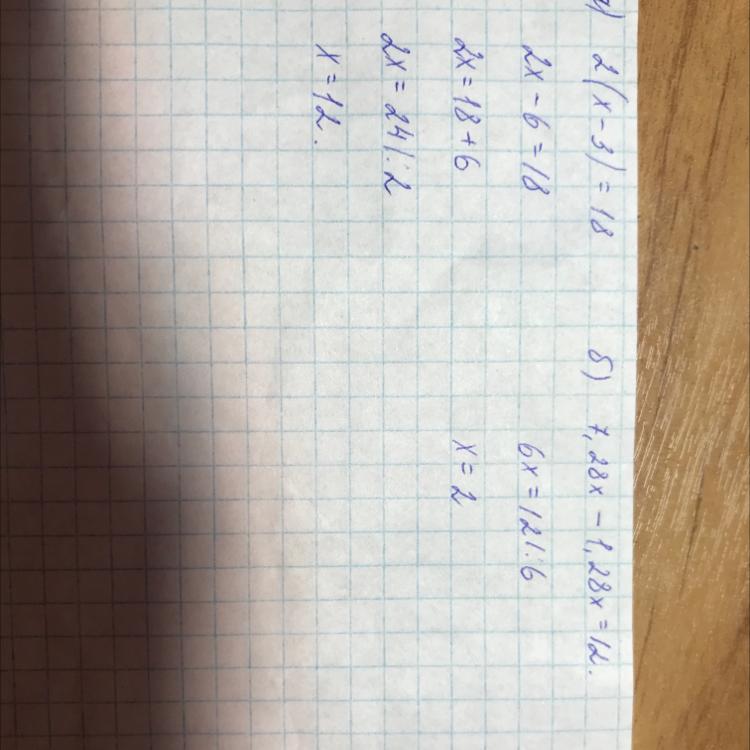 а) 2(x-3)=18
2x-6=18
2x=18+6
2x=24|:2
x=12.
б) 7,28x-1,28x=12.
6x=12|:6
x=2